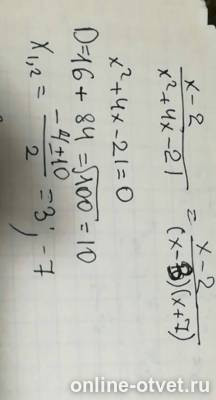 x-2/x²+4x-21 = x-2/(x-3)(x+7)
x²+4x-21=0
D=16+84=√100=10
x₁,₂ = -4±10/2 =3; -7
online-otvet.ru